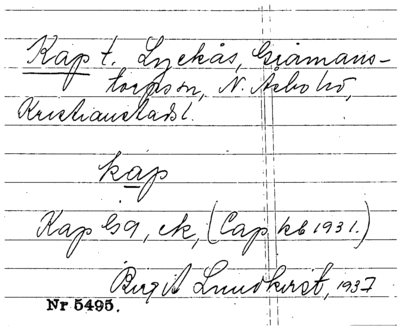 Kap t. Lyckås, Gråmans-
torps sn, N. Åsbo hd,
Kristianstads l.
kap
Kap Ga, ek, (Cap kb 1931.)
Birgit Lundkvist, 1937
Nr 5495.